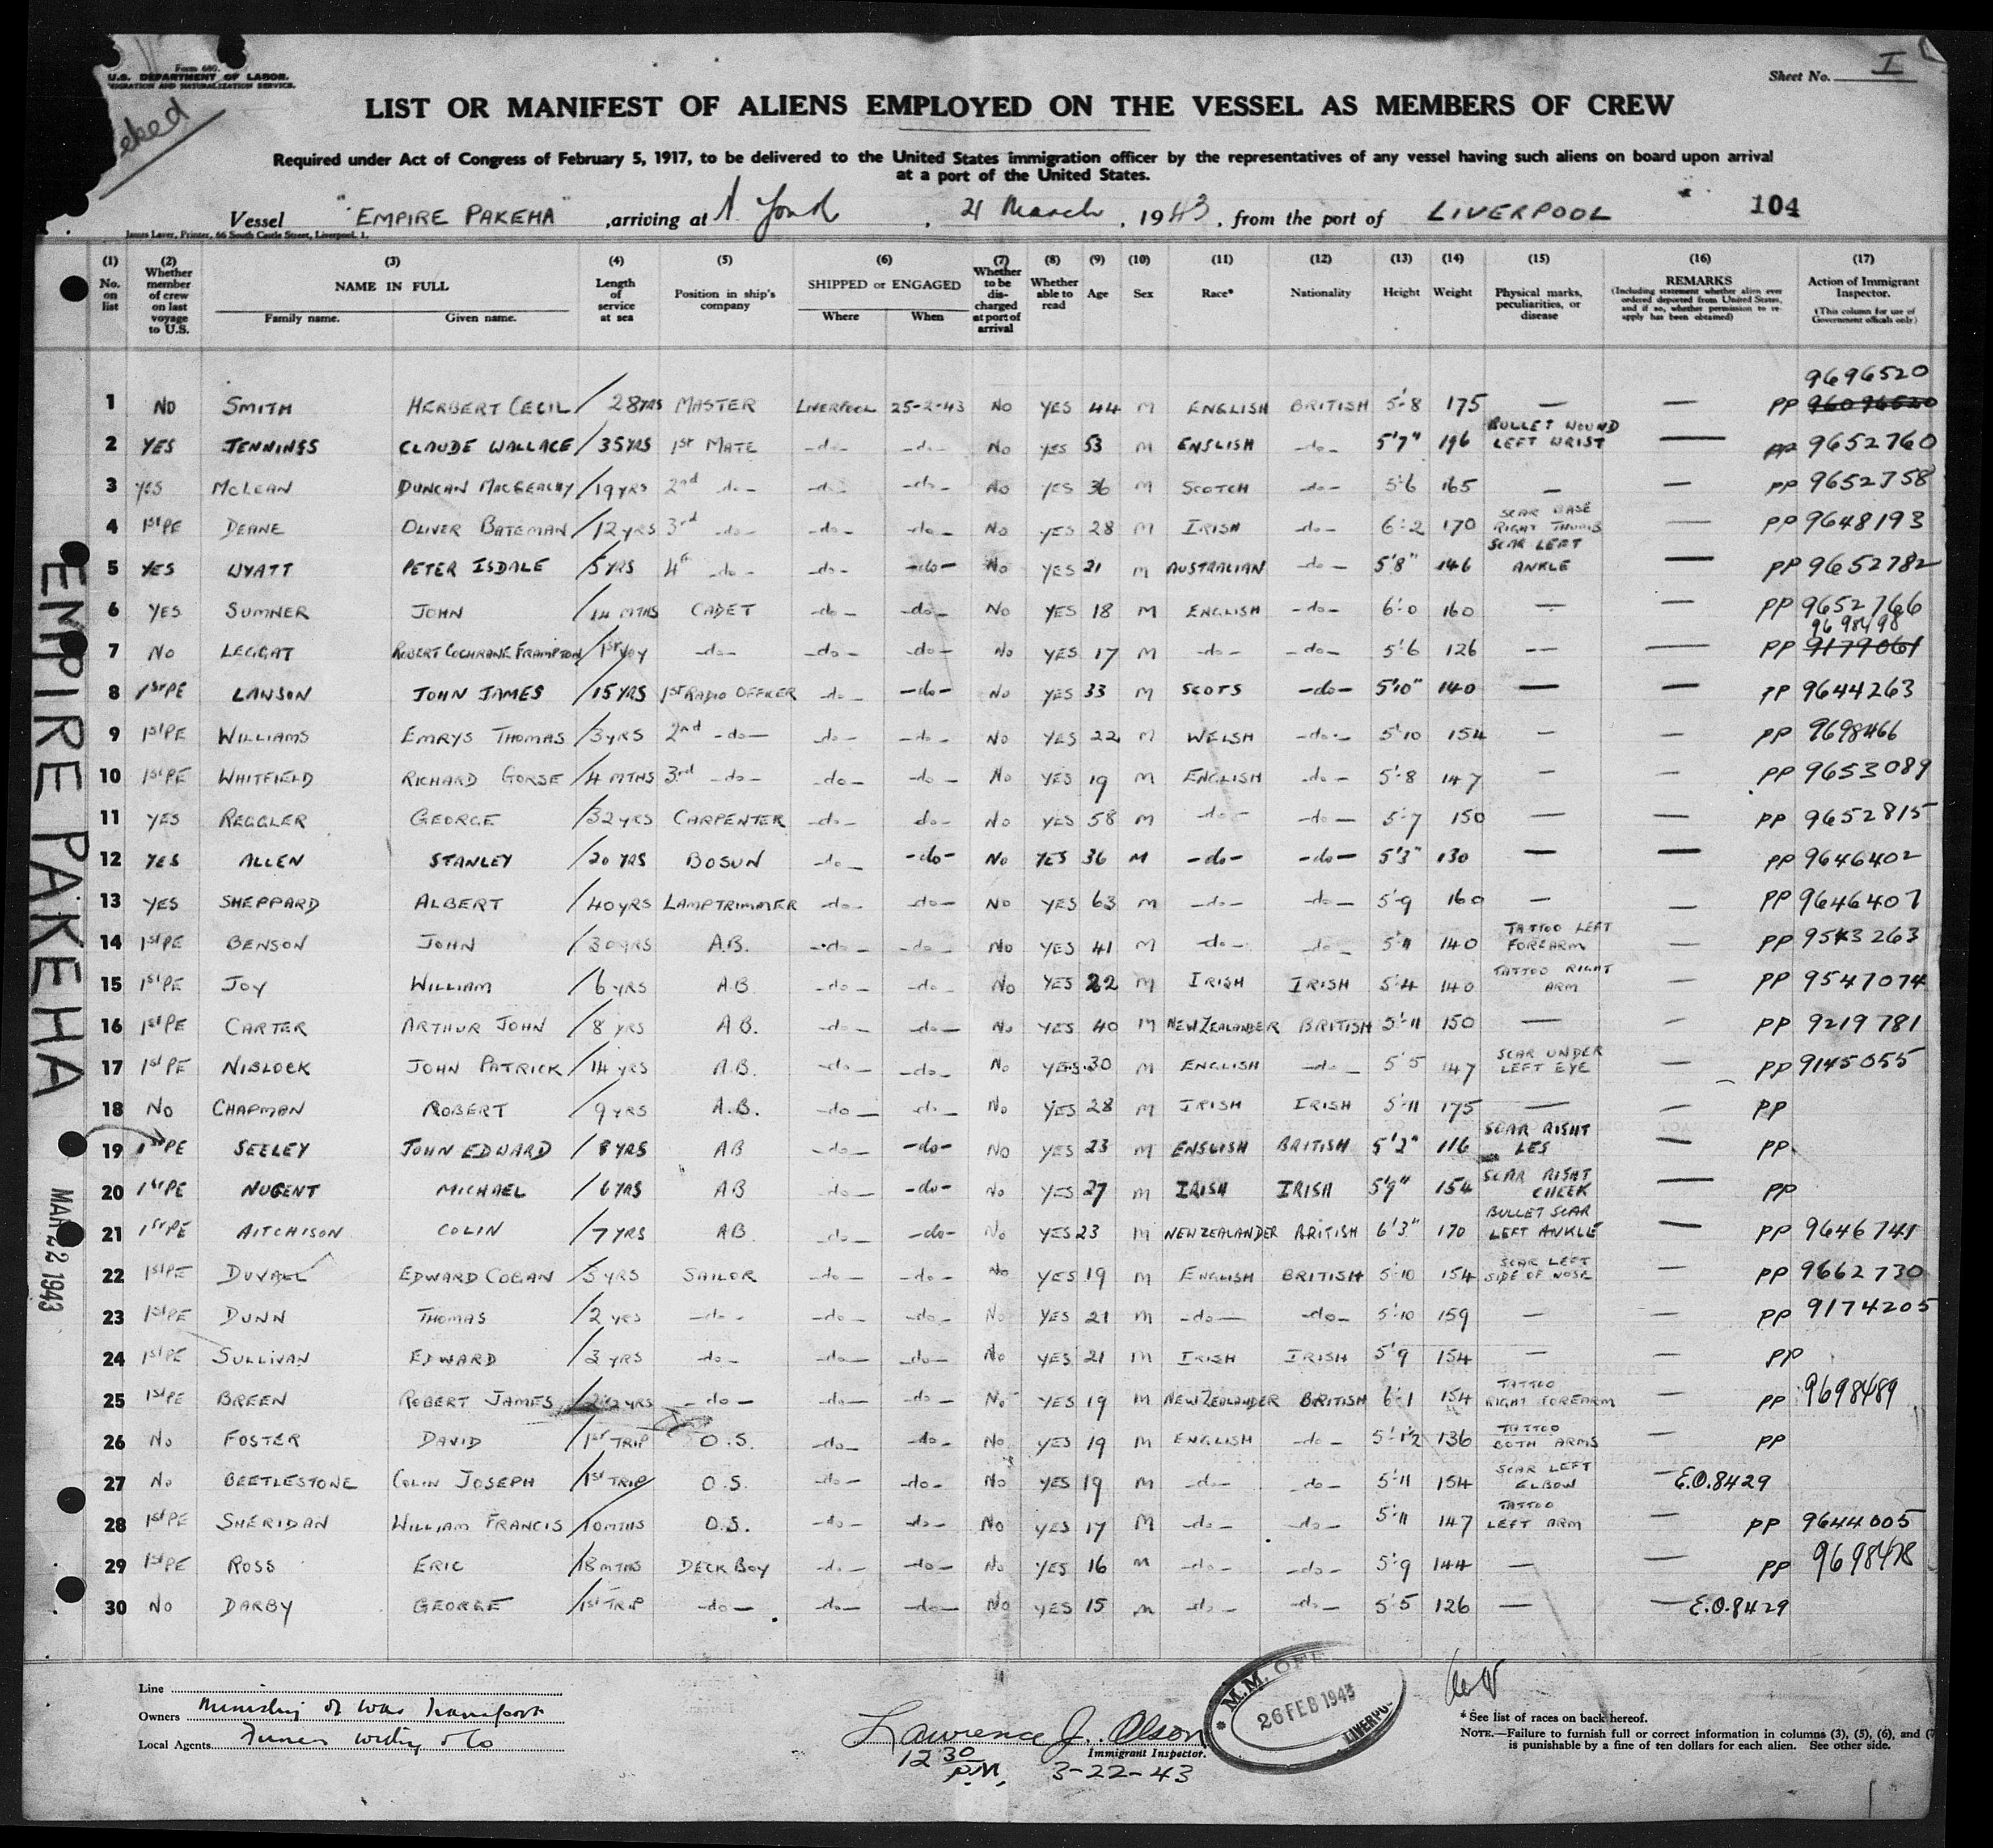 Form 680.
U.S. DEPARTMENT OF LABOR.
IMMIGRATION AND NATURALIZATION SERVICE.
Sheet No. I
LIST OR MANIFEST OF ALIENS EMPLOYED ON THE VESSEL AS MEMBERS OF CREW
Required under Act of Congress of February 5, 1917, to be delivered to the United States immigration officer by the representatives of any vessel having such aliens on board upon arrival
at a port of the United States.
Vessel "EMPIRE PAKEHA", arriving at N. York, 21 March, 1943, from the port of LIVERPOOL 104
James Laver, Printer, 66 South Castle Street, Liverpool, 1.
(1) No. on list
(2) Whether member of crew on last voyage to U.S.
(3) NAME IN FULL Family name. Given name.
(4) Length of service at sea
(5) Position in ship's company
(6) SHIPPED or ENGAGED Where When
(7) Whether to be discharged at port of arrival
(8) Whether able to read
(9) Age
(10) Sex
(11) Race*
(12) Nationality
(13) Height
(14) Weight
(15) Physical marks, peculiarities, or disease
(16) REMARKS (Including statement whether alien ever ordered deported from United States, and if so, whether permission to re-apply has been obtained)
(17) Action of Immigrant Inspector. (This column for use of Government officials only)
1 NO SMITH HERBERT CECIL 28 YRS MASTER LIVERPOOL 25-2-43 NO YES 44 M ENGLISH BRITISH 5'-8 175 — — PP 96096520 9696520
2 YES JENNINGS CLAUDE WALLACE 35 YRS 1st MATE -do- -do- NO YES 53 M ENGLISH -do- 5'7" 196 BULLET WOUND LEFT WRIST — PP 9652760
3 YES MCLEAN DUNCAN MACGEACHY 19 YRS 2nd -do- -do- -do- NO YES 36 M SCOTCH -do- 5'6 165 — — PP 9652758
4 1st PE DEANE OLIVER BATEMAN 12 YRS 3rd -do- -do- -do- NO YES 28 M IRISH -do- 6'-2 170 SCAR BASE RIGHT THUMB — PP 9648193
5 YES WYATT PETER ISDALE 5 YRS 4th -do- -do- -do- NO YES 21 M AUSTRALIAN -do- 5'8" 146 SCAR LEFT ANKLE — PP 9652782
6 YES SUMNER JOHN 14 MTHS CADET -do- -do- NO YES 18 M ENGLISH -do- 6'-0 160 — — PP 9652766
7 NO LEGGAT ROBERT COCHRANE FRAMPTON 1st VOY -do- -do- -do- NO YES 17 M -do- -do- 5'6 126 — — PP 9179061 9698498
8 1st PE LAWSON JOHN JAMES 15 YRS 1st RADIO OFFICER -do- -do- NO YES 33 M SCOTS -do- 5'10" 140 — — PP 9644263
9 1st PE WILLIAMS EMRYS THOMAS 3 YRS 2nd -do- -do- -do- NO YES 22 M WELSH -do- 5'10 154 — — PP 9698466
10 1st PE WHITFIELD RICHARD GORSE 4 MTHS 3rd -do- -do- -do- NO YES 19 M ENGLISH -do- 5'-8 147 — — PP 9653089
11 YES REGGLER GEORGE 32 YRS CARPENTER -do- -do- NO YES 58 M -do- -do- 5'-7 150 — — PP 9652815
12 YES ALLEN STANLEY 20 YRS BOSUN -do- -do- NO YES 36 M -do- -do- 5'3" 130 — — PP 9646402
13 YES SHEPPARD ALBERT 40 YRS LAMPTRIMMER -do- -do- NO YES 63 M -do- -do- 5'9 160 — — PP 9646407
14 1st PE BENSON JOHN 30 YRS A.B. -do- -do- NO YES 41 M -do- -do- 5'11 140 TATTOO LEFT FOREARM — PP 9543263
15 1st PE JOY WILLIAM 6 YRS A.B. -do- -do- NO YES 22 M IRISH IRISH 5'-4 140 TATTOO RIGHT ARM — PP 9547074
16 1st PE CARTER ARTHUR JOHN 8 YRS A.B. -do- -do- NO YES 40 M NEW ZEALANDER BRITISH 5'-11 150 — — PP 9219781
17 1st PE NIBLOCK JOHN PATRICK 14 YRS A.B. -do- -do- NO YES 30 M ENGLISH -do- 5'5 147 SCAR UNDER LEFT EYE — PP 9145055
18 NO CHAPMAN ROBERT 9 YRS A.B. -do- -do- NO YES 28 M IRISH IRISH 5'-11 175 — — PP
19 1st PE SEELEY JOHN EDWARD 8 YRS AB -do- -do- NO YES 23 M ENGLISH BRITISH 5'3" 116 SCAR RIGHT LEG — PP
20 1st PE NUGENT MICHAEL 6 YRS AB -do- -do- NO YES 27 M IRISH IRISH 5'9" 154 SCAR RIGHT CHEEK — PP
21 1st PE AITCHISON COLIN 7 YRS AB -do- -do- NO YES 23 M NEW ZEALANDER BRITISH 6'3" 170 BULLET SCAR LEFT ANKLE — PP 9646741
22 1st PE DUVALL EDWARD COGAN 3 YRS SAILOR -do- -do- NO YES 19 M ENGLISH BRITISH 5'-10 154 SCAR LEFT SIDE OF NOSE — PP 9662730
23 1st PE DUNN THOMAS 2 YRS -do- -do- -do- NO YES 21 M -do- -do- 5'-10 159 — — PP 9174205
24 1st PE SULLIVAN EDWARD 3 YRS -do- -do- -do- NO YES 21 M IRISH IRISH 5'9 154 — — PP
25 1st PE BREEN ROBERT JAMES YRS -do- -do- -do- NO YES 19 M NEW ZEALANDER BRITISH 6'-1 154 TATTOO RIGHT FOREARM — PP 9698489
26 NO FOSTER DAVID 1st TRIP O.S. -do- -do- NO YES 19 M ENGLISH -do- 136 TATTOO BOTH ARMS — PP
27 NO BEETLESTONE COLIN JOSEPH 1st TRIP O.S. -do- -do- NO YES 19 M -do- -do- 5'-11 154 SCAR LEFT ELBOW — E.O.8429
28 1st PE SHERIDAN WILLIAM FRANCIS 10 MTHS O.S. -do- -do- NO YES 17 M -do- -do- 5'-11 147 TATTOO LEFT ARM — PP 9644005
29 1st PE ROSS ERIC 18 MTHS DECK BOY -do- -do- NO YES 16 M -do- -do- 5'-9 144 — — PP 9698478
30 NO DARBY GEORGE 1st TRIP -do- -do- -do- NO YES 15 M -do- -do- 5'-5 126 — — E.O.8429
EMPIRE PAKEHA
MAR 22 1943
Line
Owners Ministry of War Transport
Local Agents
Lawrence J. Olson
Immigrant Inspector.
12 30 P.M. 3-22-43
M.M. OFF
26 FEB 1943
LIVERPO
* See list of races on back hereof.
NOTE.—Failure to furnish full or correct information in columns (3), (5), (6), and (7
is punishable by a fine of ten dollars for each alien. See other side.